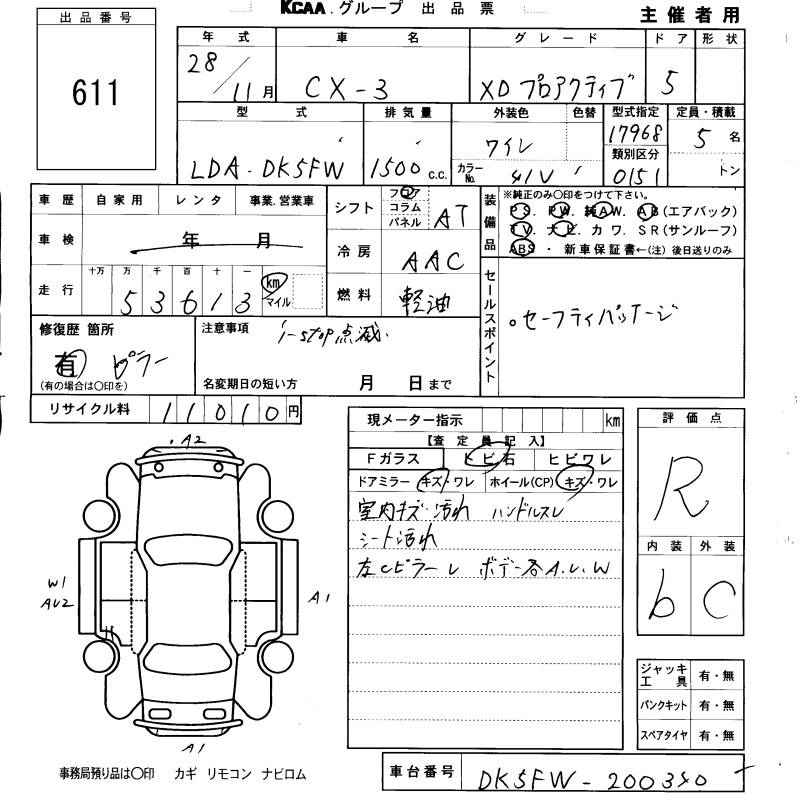 KCAA.グループ 出品票
主催者用
出品番号
611
年式 車名 グレード ドア 形状
28/11月 CX-3 XDプロアクティブ 5
型式 排気量 外装色 色替 型式指定 定員・積載
17968 5名
LDA-DK5FW 1500 c.c. ワイレ 類別区分
カラーNo. 41V 0151 トン
車歴 自家用 レンタ 事業.営業車
シフト フロア コラム パネル AT
装備品 ※純正のみ○印をつけて下さい。
PS. PW. 純AW. AB(エアバック)
TV. ナビ. カワ. SR(サンルーフ)
ABS・新車保証書←(注)後日送りのみ
車検 年 月
冷房 AAC
走行 十万 万 千 百 十 一
53613 km マイル
燃料 軽油
セールスポイント
。セーフティパッケージ
修復歴 箇所
有 ピラー
(有の場合は○印を)
注意事項 i-stop点滅.
名変期日の短い方 月 日まで
リサイクル料 11010円
現メーター指示 km
【査定員記入】
Fガラス トビ石 ヒビワレ
ドアミラー キズ・ワレ ホイール(CP) キズ・ワレ
室内キズ・汚れ ハンドルスレ
シート汚れ
左Cピラーレ ボデー各A.U.W
評価点
R
内装 外装
b C
A2
W1
AU2
A1
A1
ジャッキ工具 有・無
パンクキット 有・無
スペアタイヤ 有・無
事務局預り品は○印 カギ リモコン ナビロム
車台番号 DK5FW-200340